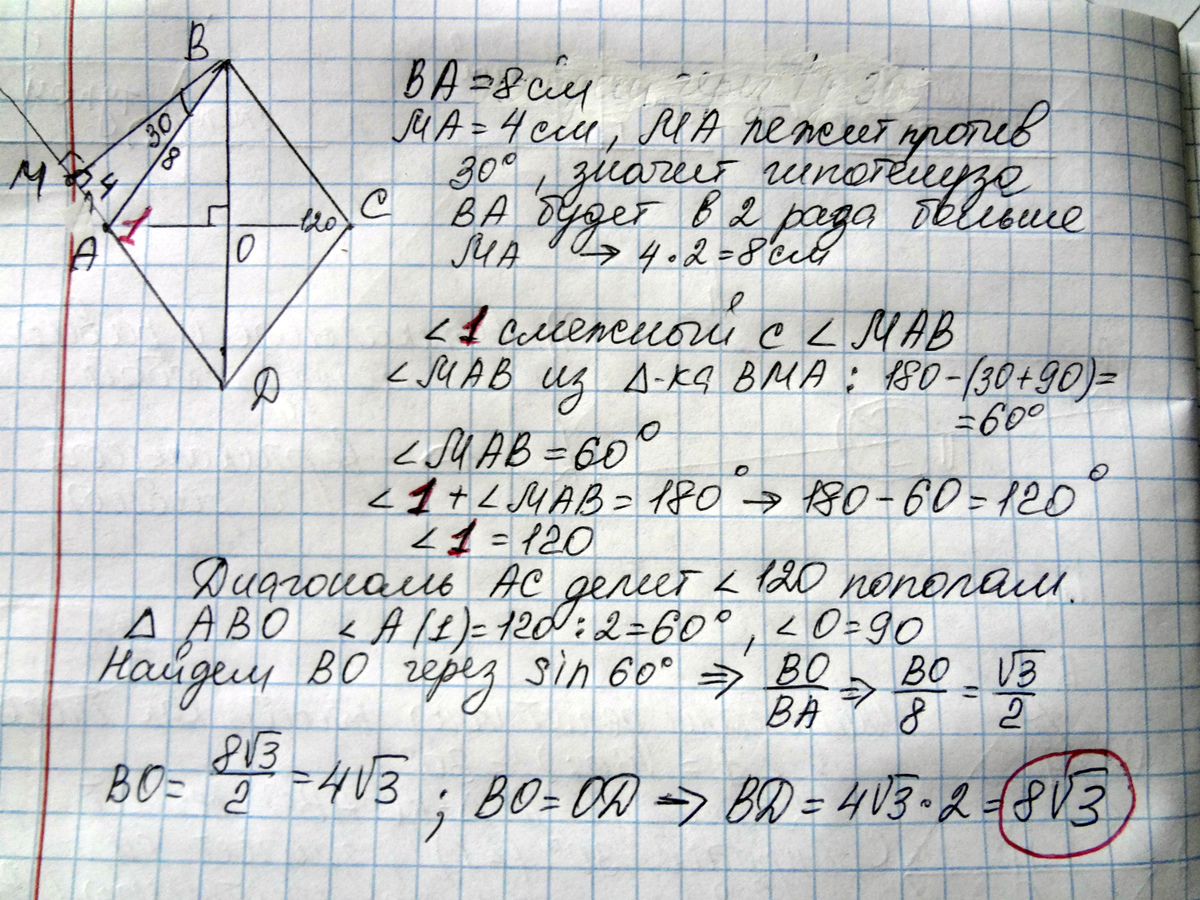 B
30
8
M
4
A
1
O
120
C
D
BA = 8 см
MA = 4 см, MA лежит против
30°, значит гипотенуза
BA будет в 2 раза больше
MA → 4·2=8 см
∠1 смежный с ∠MAB
∠MAB из Δ-ка BMA: 180-(30+90)=
=60°
∠MAB = 60°
∠1 + ∠MAB = 180° → 180-60=120°
∠1 = 120
Диагональ AC делит ∠120 пополам.
Δ ABO ∠A(1)=120:2=60°, ∠O=90
Найдем BO через sin 60° ⇒ BO/BA ⇒ BO/8 = √3/2
BO = 8√3/2 = 4√3 ; BO=OD → BD = 4√3·2 = 8√3